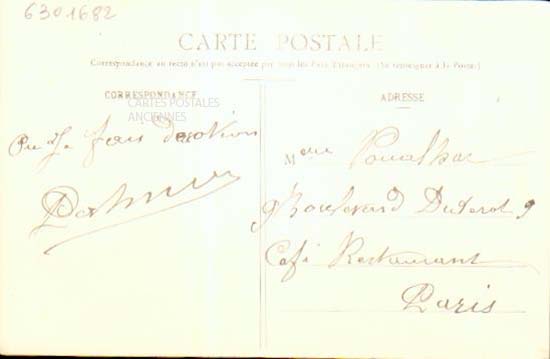 6301682
CARTE POSTALE
Correspondance au recto n'est pas acceptée par tous les Pays Étrangers. (Se renseigner à la Poste.)
CORRESPONDANCE
CARTES POSTALES
ANCIENNES
ADRESSE
fais
Mme
9 Boulevard Diderot 9
Café Restaurant
Paris